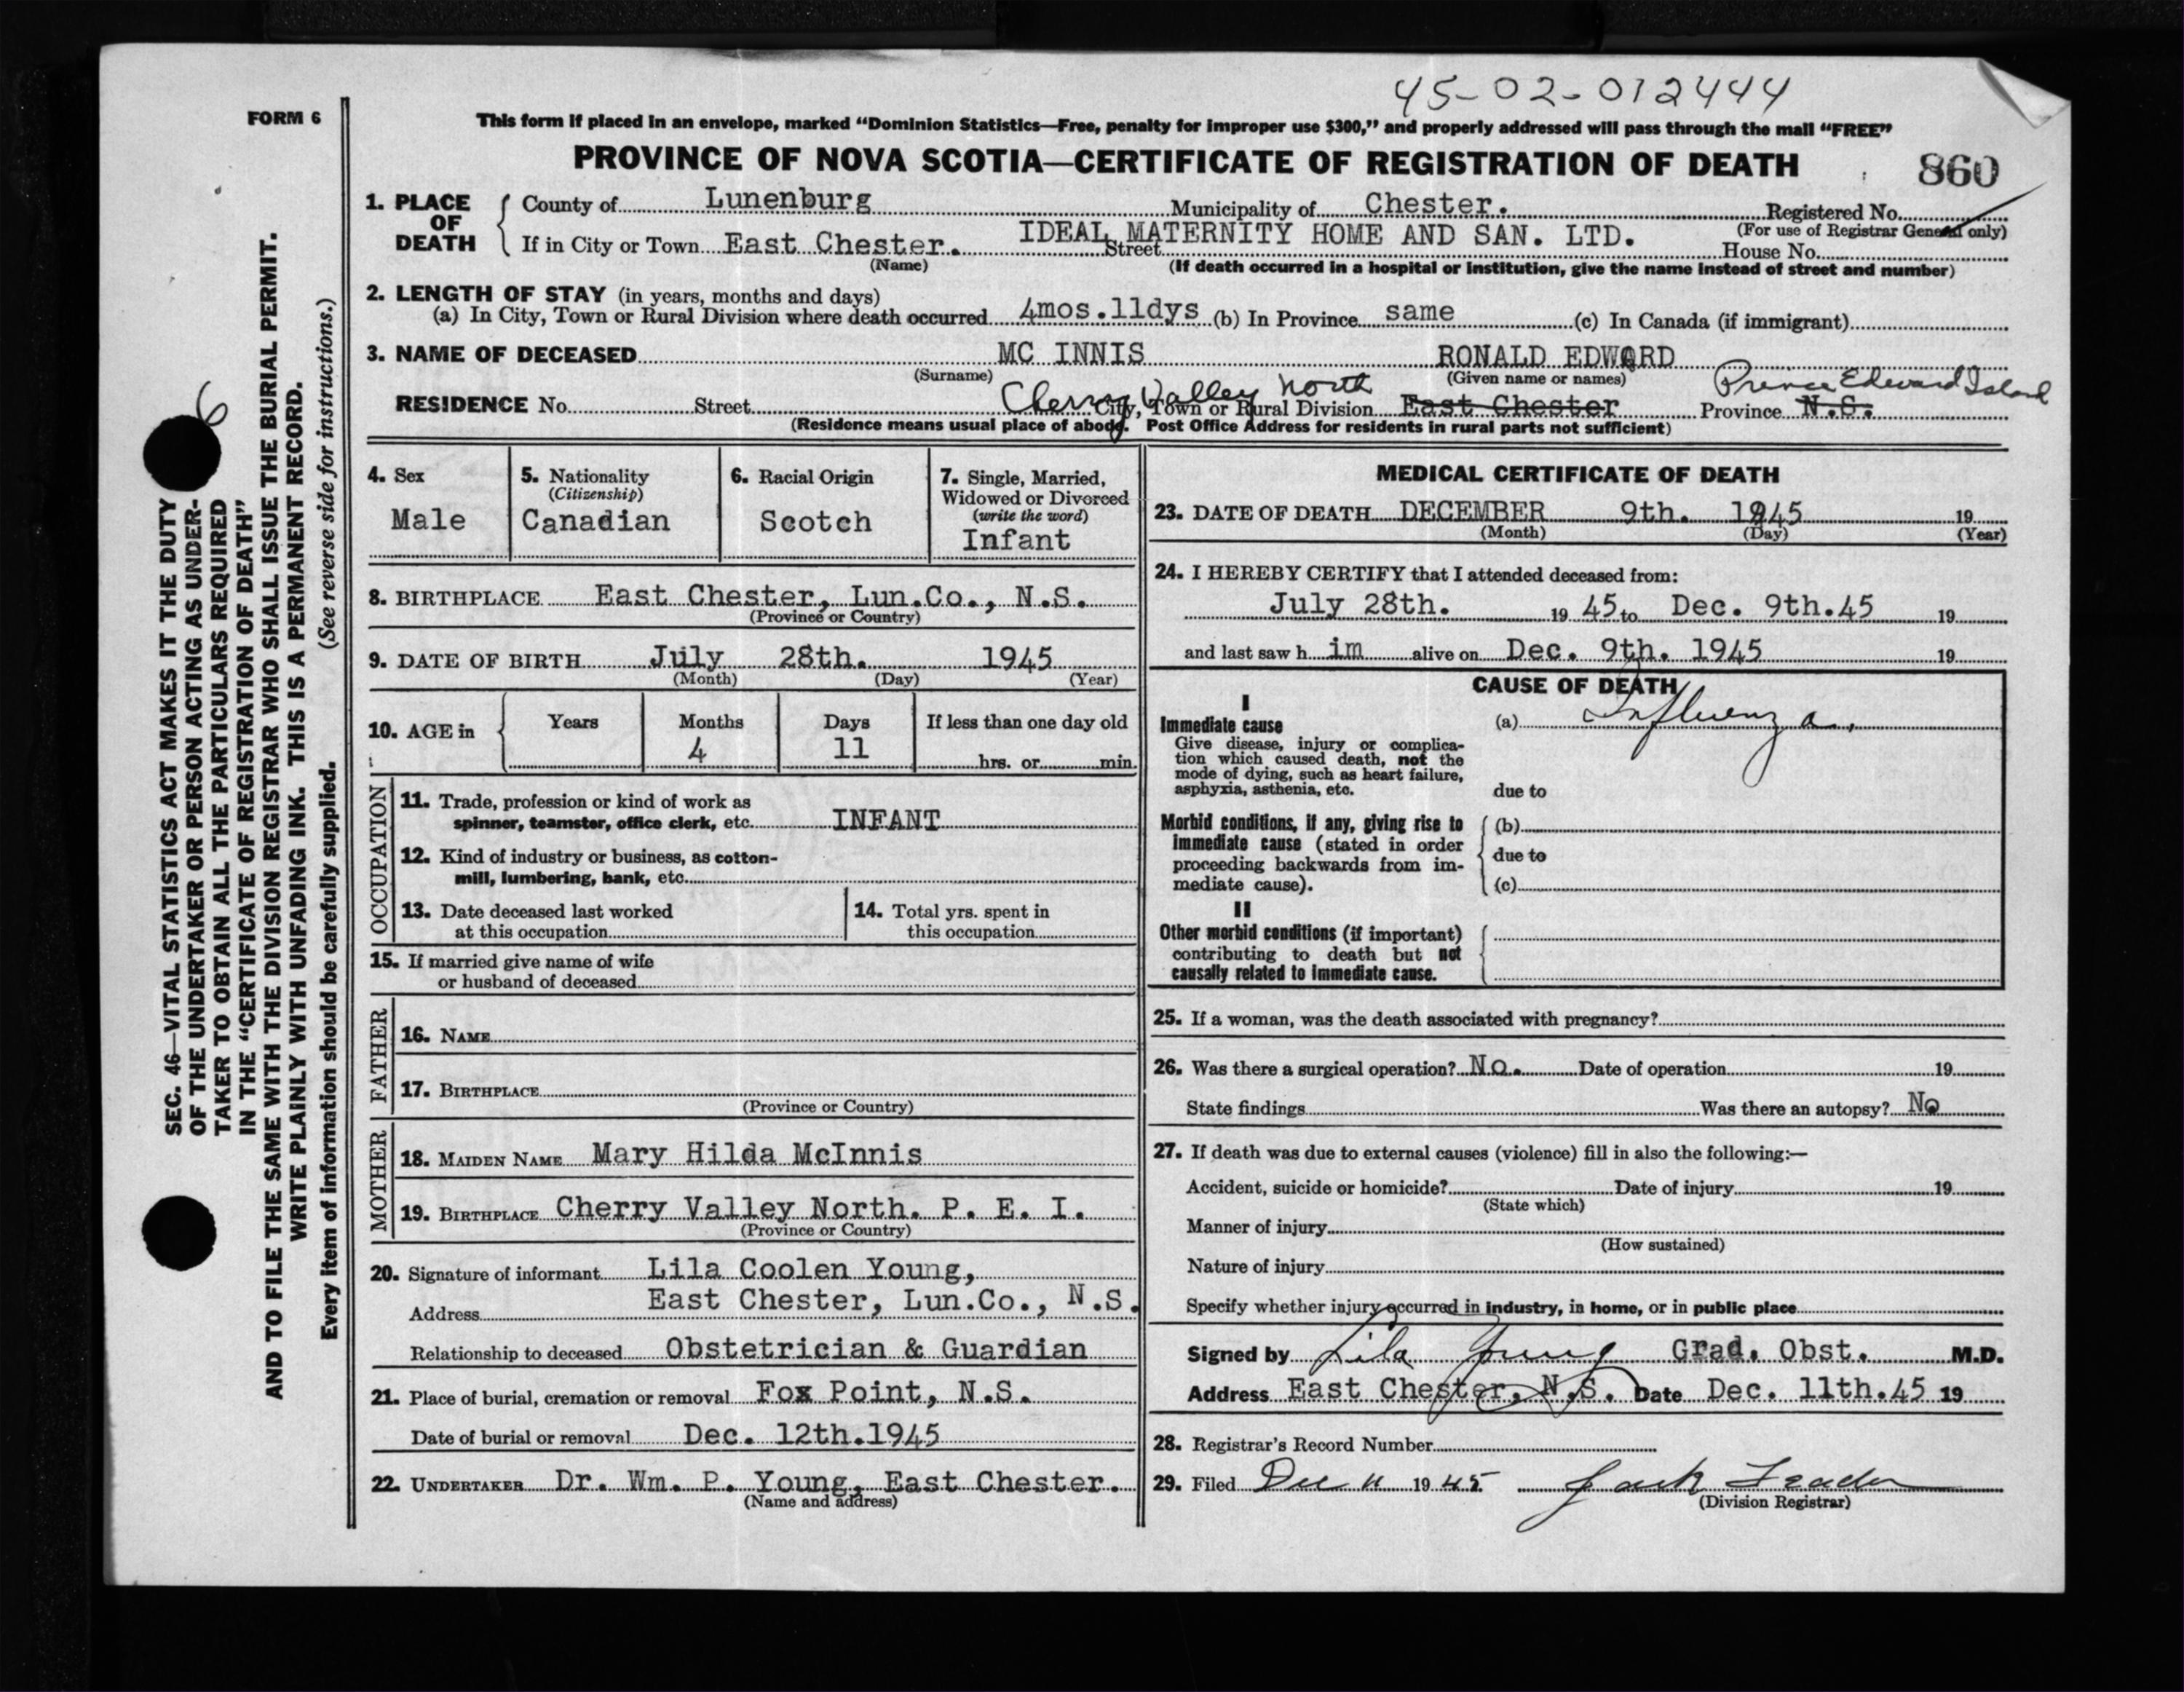 45-02-012444
FORM 6
This form if placed in an envelope, marked “Dominion Statistics—Free, penalty for improper use $300,” and properly addressed will pass through the mail “FREE”
PROVINCE OF NOVA SCOTIA—CERTIFICATE OF REGISTRATION OF DEATH
860
1. PLACE OF DEATH
County of Lunenburg Municipality of Chester. Registered No.
(For use of Registrar General only)
If in City or Town East Chester. Street IDEAL MATERNITY HOME AND SAN. LTD. House No.
(Name) (If death occurred in a hospital or institution, give the name instead of street and number)
2. LENGTH OF STAY (in years, months and days)
(a) In City, Town or Rural Division where death occurred 4mos.11dys (b) In Province same (c) In Canada (if immigrant)
3. NAME OF DECEASED MC INNIS RONALD EDWARD
(Surname) (Given name or names)
Cherry Valley North Prince Edward Island
RESIDENCE No. Street City, Town or Rural Division East Chester Province N.S.
(Residence means usual place of abode. Post Office Address for residents in rural parts not sufficient)
4. Sex
Male
5. Nationality
(Citizenship)
Canadian
6. Racial Origin
Scotch
7. Single, Married,
Widowed or Divorced
(write the word)
Infant
8. BIRTHPLACE East Chester, Lun.Co., N.S.
(Province or Country)
9. DATE OF BIRTH July 28th. 1945
(Month) (Day) (Year)
10. AGE in
Years Months Days If less than one day old
4 11 hrs. or min.
OCCUPATION
11. Trade, profession or kind of work as
spinner, teamster, office clerk, etc. INFANT
12. Kind of industry or business, as cotton-
mill, lumbering, bank, etc.
13. Date deceased last worked
at this occupation
14. Total yrs. spent in
this occupation
15. If married give name of wife
or husband of deceased
FATHER
16. NAME
17. BIRTHPLACE
(Province or Country)
MOTHER
18. MAIDEN NAME Mary Hilda McInnis
19. BIRTHPLACE Cherry Valley North. P. E. I.
(Province or Country)
20. Signature of informant Lila Coolen Young,
Address East Chester, Lun.Co., N.S.
Relationship to deceased Obstetrician & Guardian
21. Place of burial, cremation or removal Fox Point, N.S.
Date of burial or removal Dec. 12th.1945
22. UNDERTAKER Dr. Wm. P. Young, East Chester.
(Name and address)
MEDICAL CERTIFICATE OF DEATH
23. DATE OF DEATH DECEMBER 9th. 1945 19
(Month) (Day) (Year)
24. I HEREBY CERTIFY that I attended deceased from:
July 28th. 19 45 to Dec. 9th.45 19
and last saw h im alive on Dec. 9th. 1945 19
CAUSE OF DEATH
I
Immediate cause
Give disease, injury or complica-
tion which caused death, not the
mode of dying, such as heart failure,
asphyxia, asthenia, etc.
(a) Influenza.
due to
Morbid conditions, if any, giving rise to
immediate cause (stated in order
proceeding backwards from im-
mediate cause).
(b)
due to
(c)
II
Other morbid conditions (if important)
contributing to death but not
causally related to immediate cause.
25. If a woman, was the death associated with pregnancy?
26. Was there a surgical operation? No. Date of operation 19
State findings Was there an autopsy? No
27. If death was due to external causes (violence) fill in also the following:—
Accident, suicide or homicide? Date of injury 19
(State which)
Manner of injury
(How sustained)
Nature of injury
Specify whether injury occurred in industry, in home, or in public place
Signed by Lila Young Grad. Obst. M.D.
Address East Chester, N.S. Date Dec. 11th.45 19
28. Registrar's Record Number
29. Filed Dec 11 1945 Jack
(Division Registrar)
6
SEC. 46—VITAL STATISTICS ACT MAKES IT THE DUTY
OF THE UNDERTAKER OR PERSON ACTING AS UNDER-
TAKER TO OBTAIN ALL THE PARTICULARS REQUIRED
IN THE “CERTIFICATE OF REGISTRATION OF DEATH”
AND TO FILE THE SAME WITH THE DIVISION REGISTRAR WHO SHALL ISSUE THE BURIAL PERMIT.
WRITE PLAINLY WITH UNFADING INK. THIS IS A PERMANENT RECORD.
Every item of information should be carefully supplied. (See reverse side for instructions.)